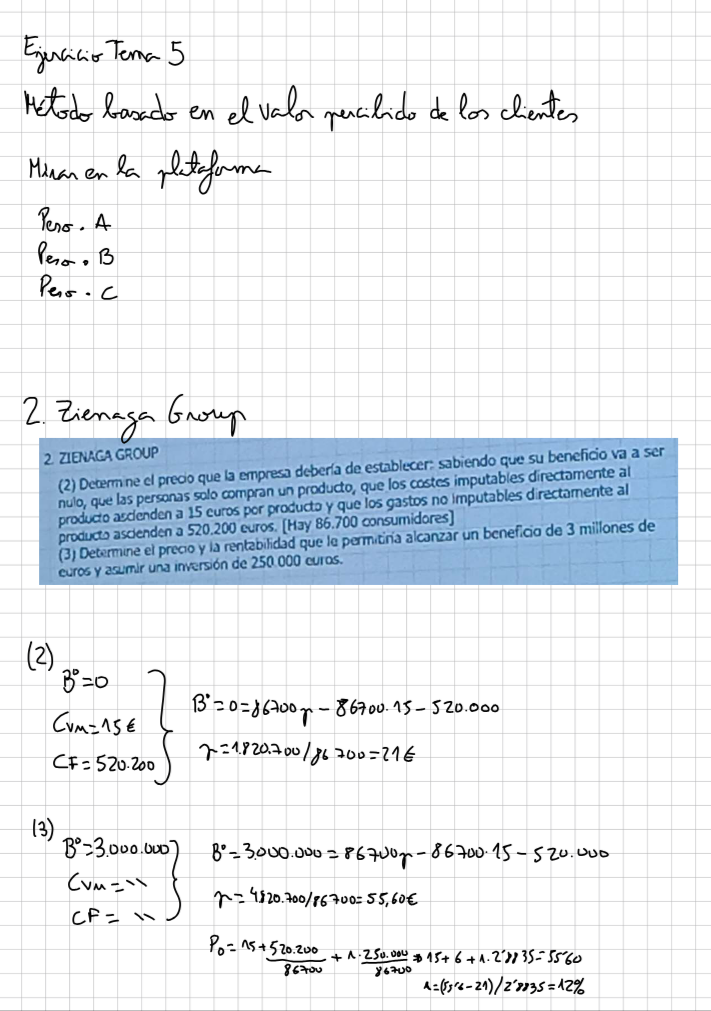 Ejercicio Tema 5
Método basado en el valor percibido de los clientes
Mirar en la plataforma
Peso. A
Peso. B
Peso. C
2. Zienaga Group
2. ZIENAGA GROUP
(2) Determine el precio que la empresa debería de establecer: sabiendo que su beneficio va a ser
nulo, que las personas solo compran un producto, que los costes imputables directamente al
producto ascienden a 15 euros por producto y que los gastos no imputables directamente al
producto ascienden a 520.200 euros. [Hay 86.700 consumidores]
(3) Determine el precio y la rentabilidad que le permitiría alcanzar un beneficio de 3 millones de
euros y asumir una inversión de 250.000 euros.
(2)
Bº=0
CVM=15€
CF=520.200
Bº=0=86700p-86700.15-520.000
p=1.820.700/86700=21€
(3)
Bº=3.000.000
CVM="
CF= "
Bº=3.000.000=86700p-86700.15-520.000
p=4820.700/86700=55,60€
P0=15+520.200/86700+r.250.000/86700→15+6+r.2'8835=55'60
r=(55'6-21)/2'8835=12%